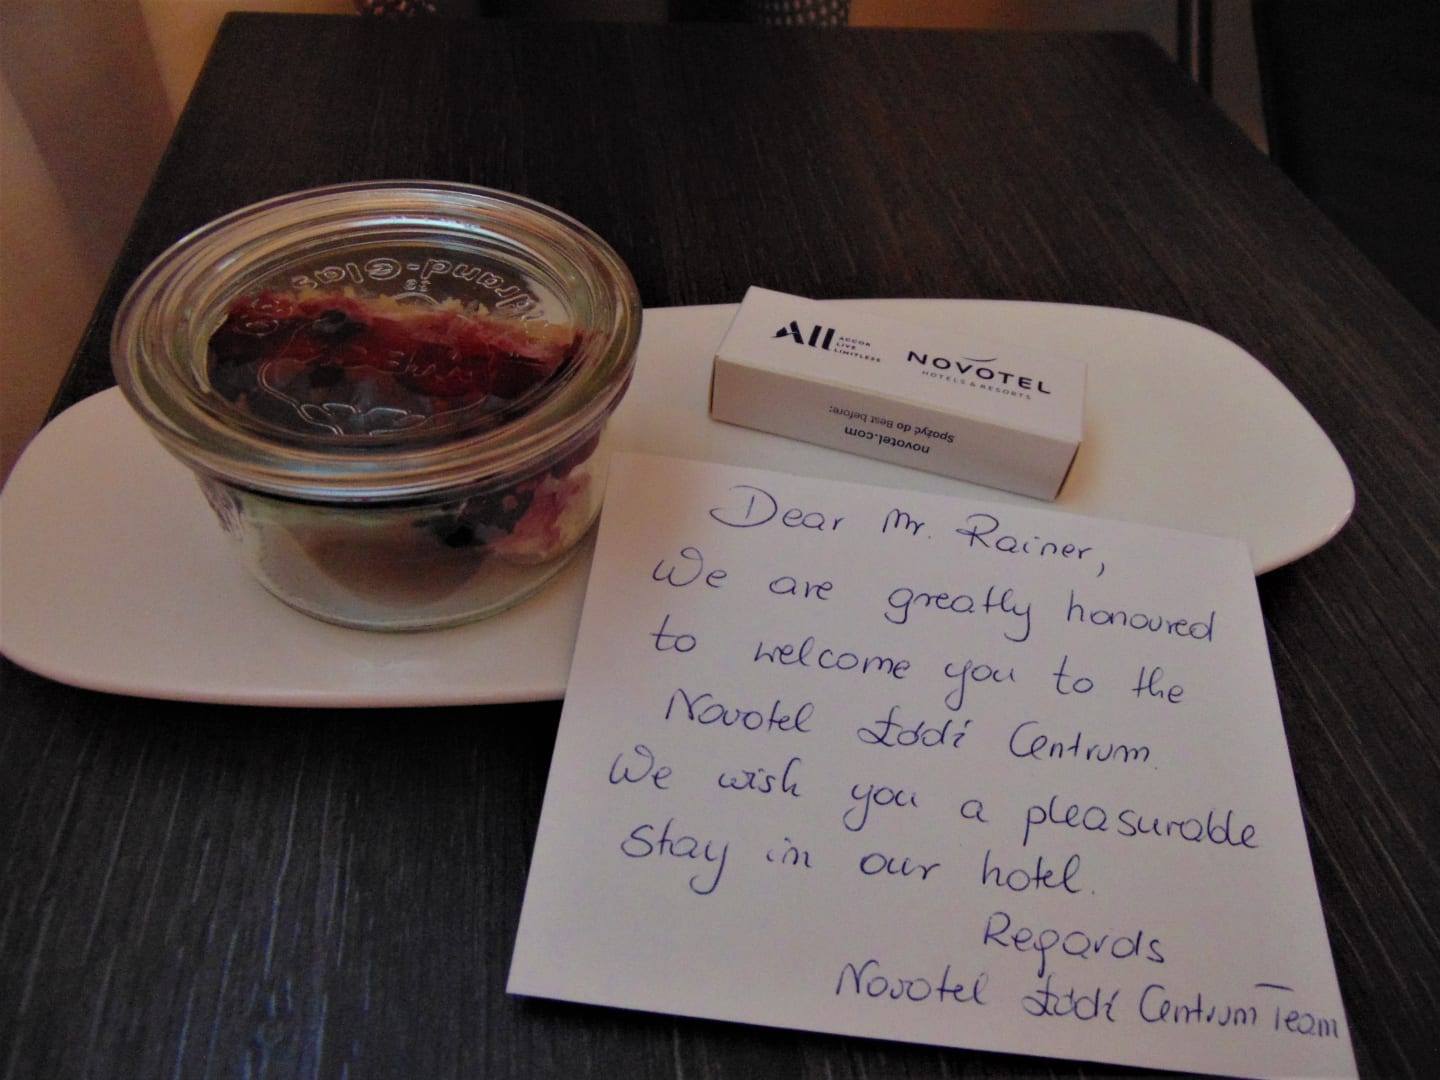 All ACCOR LIVE LIMITLESS
NOVOTEL
HOTELS & RESORTS
Spożyć do Best before:
novotel.com
Dear Mr. Rainer,
We are greatly honoured
to welcome you to the
Novotel Łódź Centrum.
We wish you a pleasurable
stay in our hotel.
Regards
Novotel Łódź Centrum Team